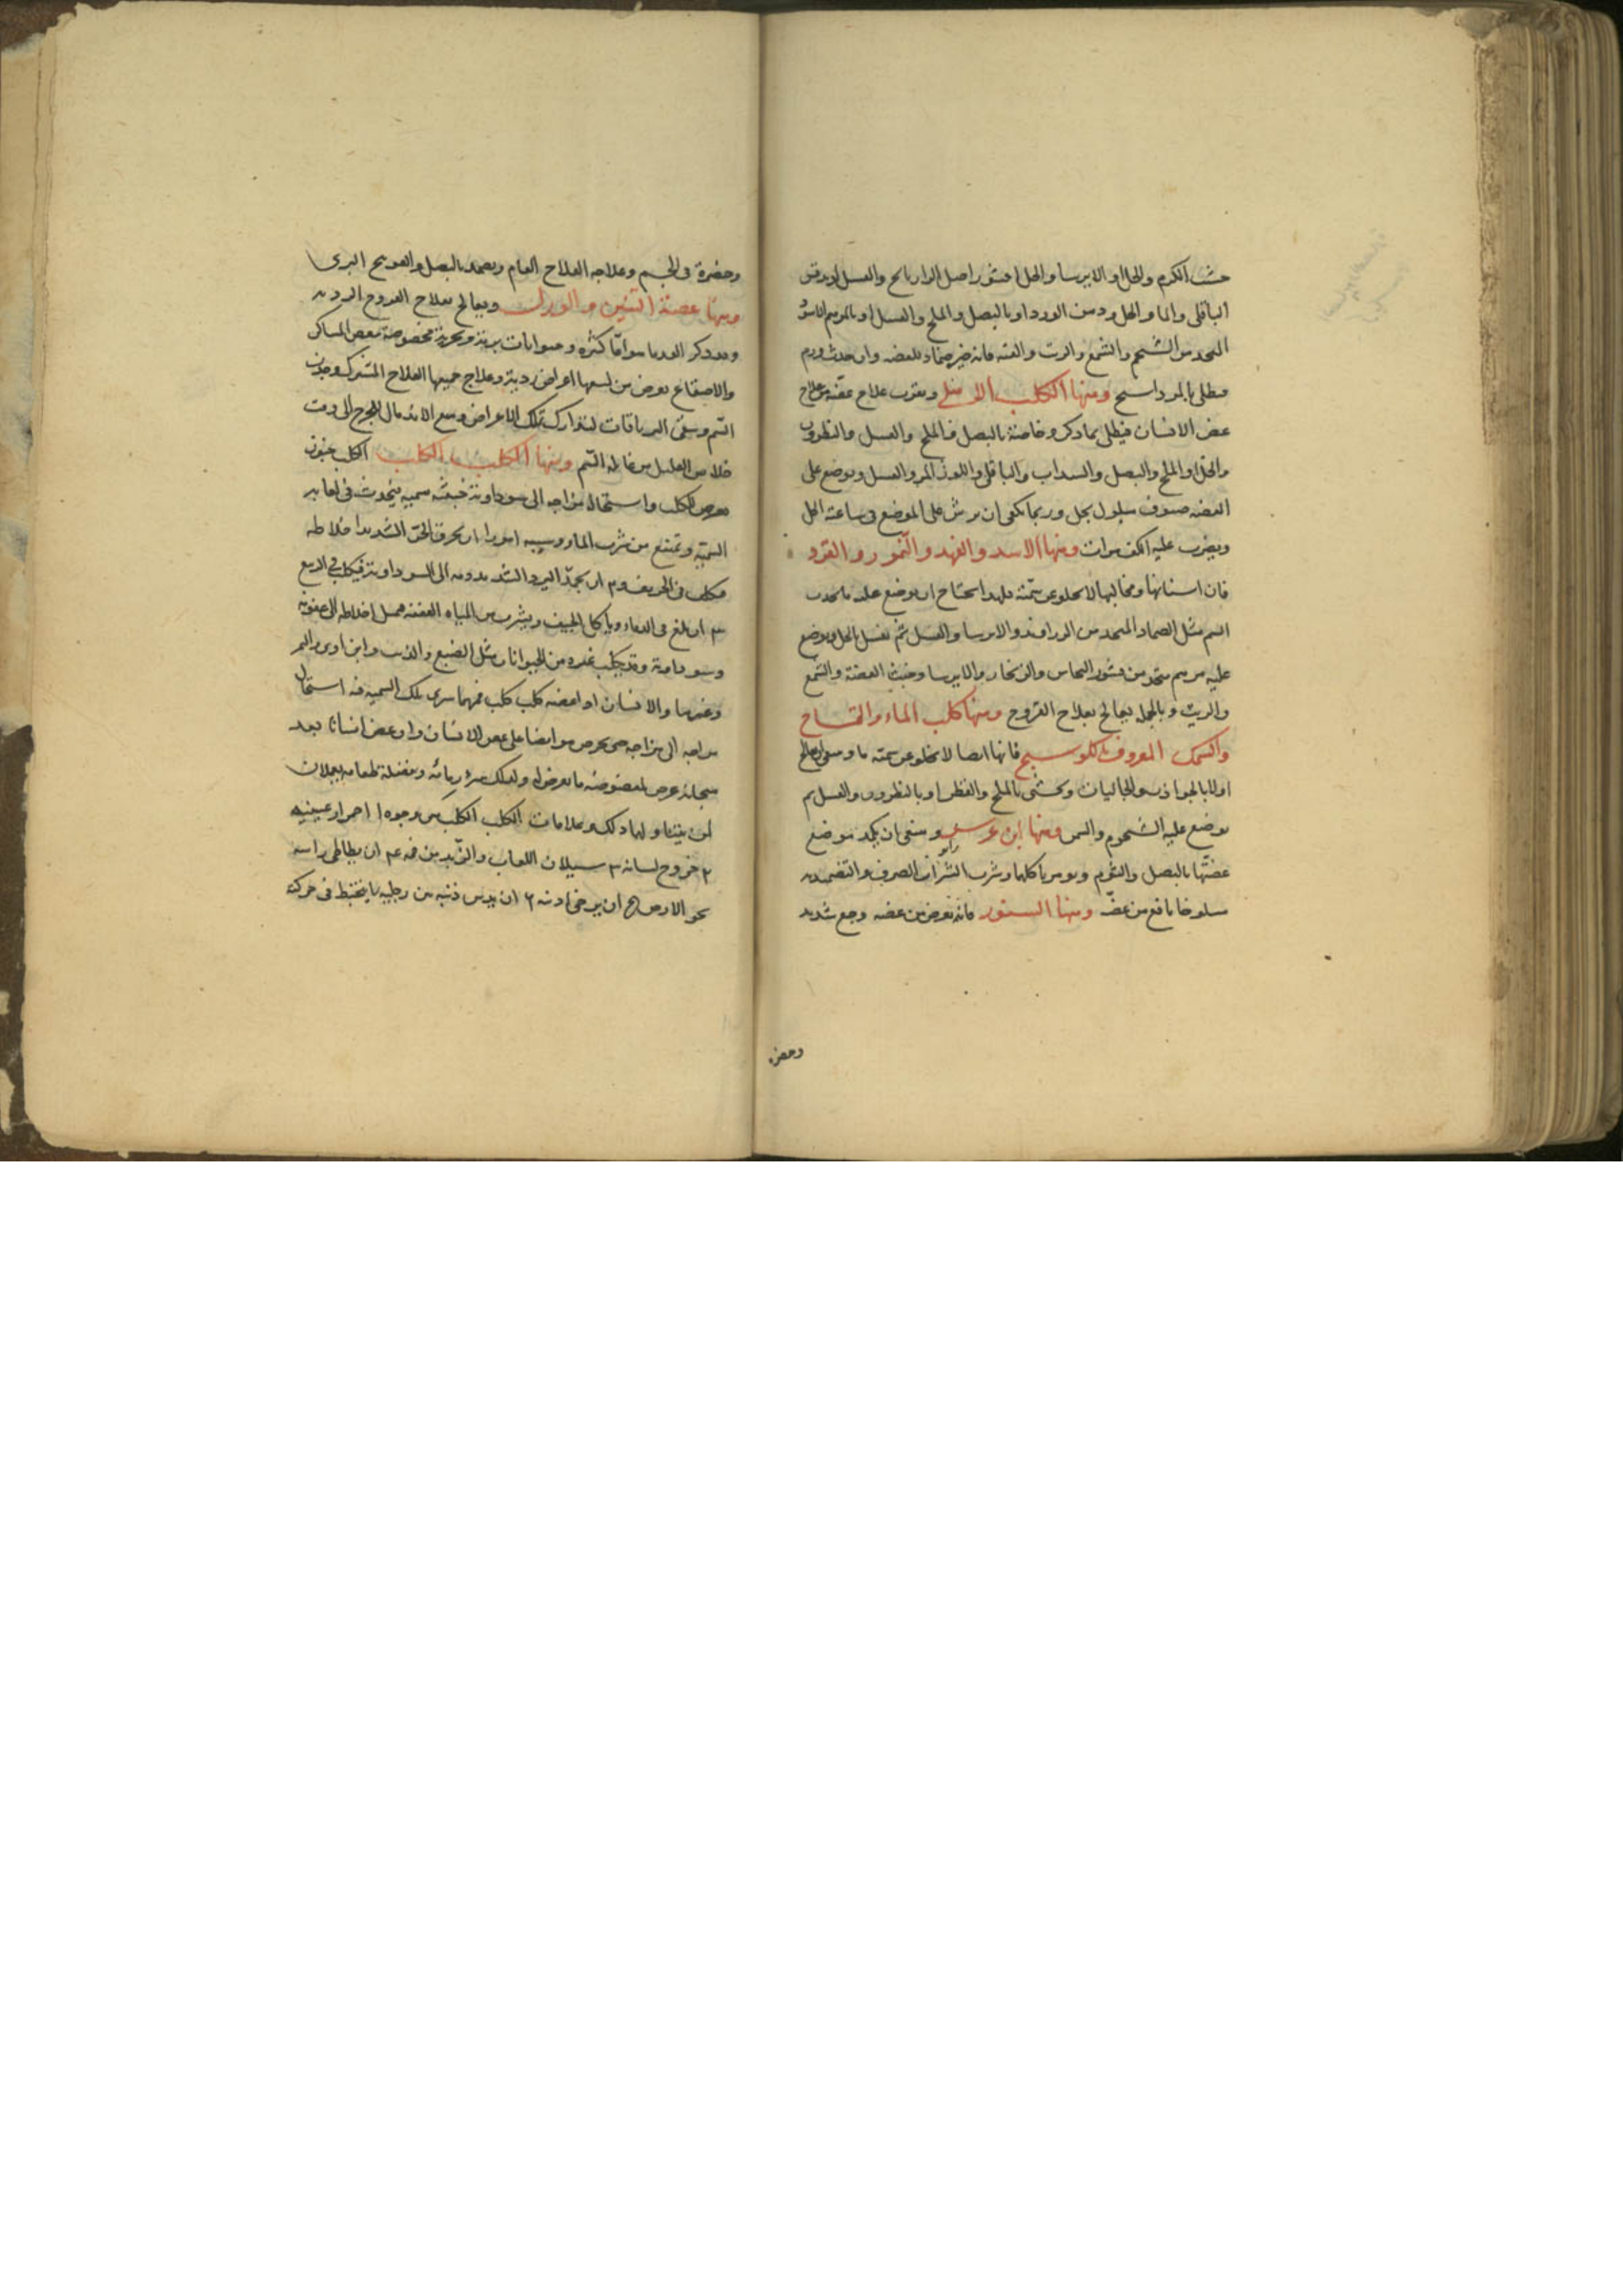 الكرم والخل او الايرسا والخل او قشور اصل الرازيانج والعسل او دقيق
الباقلى والماء والخل ودهن الورد او بالبصل والملح والعسل او بالمرهم
من الشحم والشمع والزيت والقنه فانه خير ضماد للعضه وان حدث ورم
فيطلى بالمرداسنج ومنها الكلب الاهلى ويقرب علاج عضه من علاج
عض الانسان فيطلى بما ذكر وخاصة بالبصل والملح والعسل والنطرون
والخل او الملح والبصل والسداب والباقلى واللوز المر والعسل ويوضع على
العضه صوف مبلول بخل وربما يكفى ان يرش على الموضع فى ساعته الخل
ويضرب عليه الكف مرات ومنها الاسد والفهد والنمور والقرد
فان اسنانها ومخاليبها لا يخلو عن سمية فلهذا يحتاج ان يوضع عليه ما يجذب
السم مثل الضماد المتخذ من الزراوند والايرسا والعسل ثم يغسل بالخل ويوضع
عليه مرهم متخذ من قشور النحاس والزنجار والايرسا وخبث الفضة والشمع
والزيت وبالجملة يعالج بعلاج القروح ومنها كلب الماء والتمساح
والسمك المعروف بالكوسج فانها ايضا لا يخلو عن سمية ما
اولا بالجواذب والجاليات ويحشى بالملح والقطن او بالنطرون والعسل ثم
يوضع عليه الشحوم والسمن ومنها ابن عرس وينبغى ان يكمد موضع
عضتها بالبصل والثوم ويومر باكلها وشرب الشراب الصرف والتضميد به
مسلوخا نافع من عضه ومنها السنور فانه يعرض من عضه وجع شديد
وخضره
وخضرة فى الجسم وعلاجه العلاج العام ويضمد بالبصل والفوتنج البرى
ومنها عضة التنين والورل ويعالج بعلاج القروح الرديه
وقد ذكر القدما سواما كثيره وحيوانات برية وبحرية مخصوصة ببعض المساكن
والاصقاع يعرض من لسعها اعراض ردية وعلاج جميعها العلاج المشترك وجذب
السم وسقى الترياقات لتدارك تلك الاعراض ومنع الاندمال للجرح الى وقت
خلاص العليل من غايلة السم ومنها الكلب الكلب الكلب جنون
يعرض للكلب واستحالة مزاجه الى سوداوية خبيثه سميه يحدث فى لعابه
السمية وتمتنع من شرب الماء وسببه امور ا ان يحرق الحر الشديد اخلاطه
فيكلب فى الخريف ٢ ان يجمد البرد الشديد دمه الى السوداوية فيكلب فى الربيع
٣ ان يلغ فى الدماء وياكل الجيف ويشرب من المياه العفنه فيميل اخلاطه الى عفونه
وسوداوية وقد يكلب غيره من الحيوانات مثل الضبع والذئب وابن اوى والنمر
وغيرها والانسان اذا عضه كلب كلب فمهما سرى تلك السمية فيه استحال
مزاجه الى مزاجه حتى يحرص هو ايضا على عض الانسان وان عض انسانا بعد
استحالة عرض لمعضوضه ما يعرض له ولذلك سور مائه وفضلة طعامه يعملان
لمن يتناولها ذلك وعلامات الكلب الكلب من وجوه ا احمرار عينيه
٢ خروج لسانه ٣ سيلان اللعاب والزبد من فمه ٤ ان يطاطى راسه
نحو الارض ٥ ان يرخى اذنه ٦ ان يدس ذنبه بين رجليه ٧ يختبط فى حركته